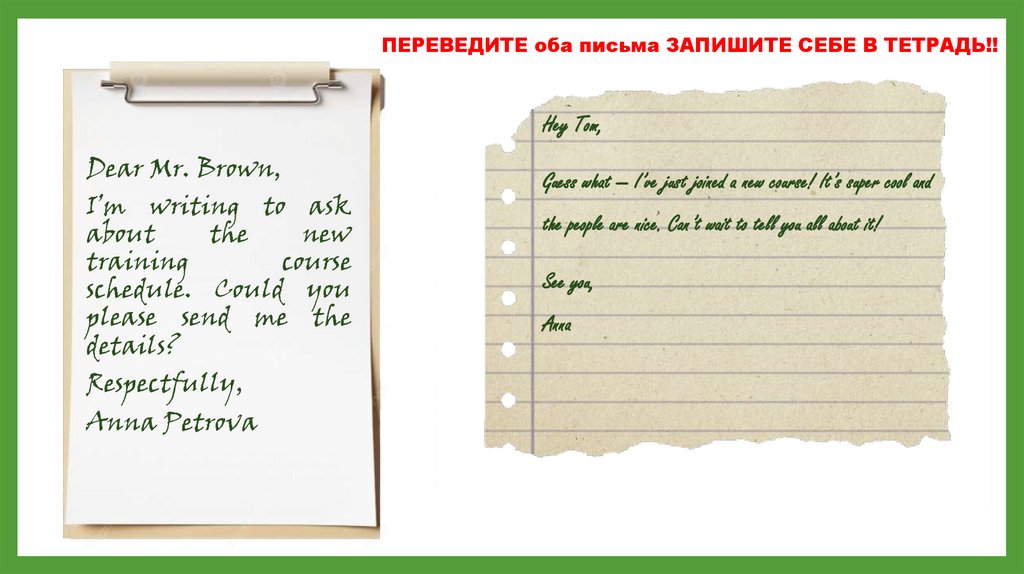 ПЕРЕВЕДИТЕ оба письма ЗАПИШИТЕ СЕБЕ В ТЕТРАДЬ!!
Dear Mr. Brown,
I'm writing to ask
about the new
training course
schedule. Could you
please send me the
details?
Respectfully,
Anna Petrova
Hey Tom,
Guess what — I've just joined a new course! It's super cool and
the people are nice. Can't wait to tell you all about it!
See you,
Anna